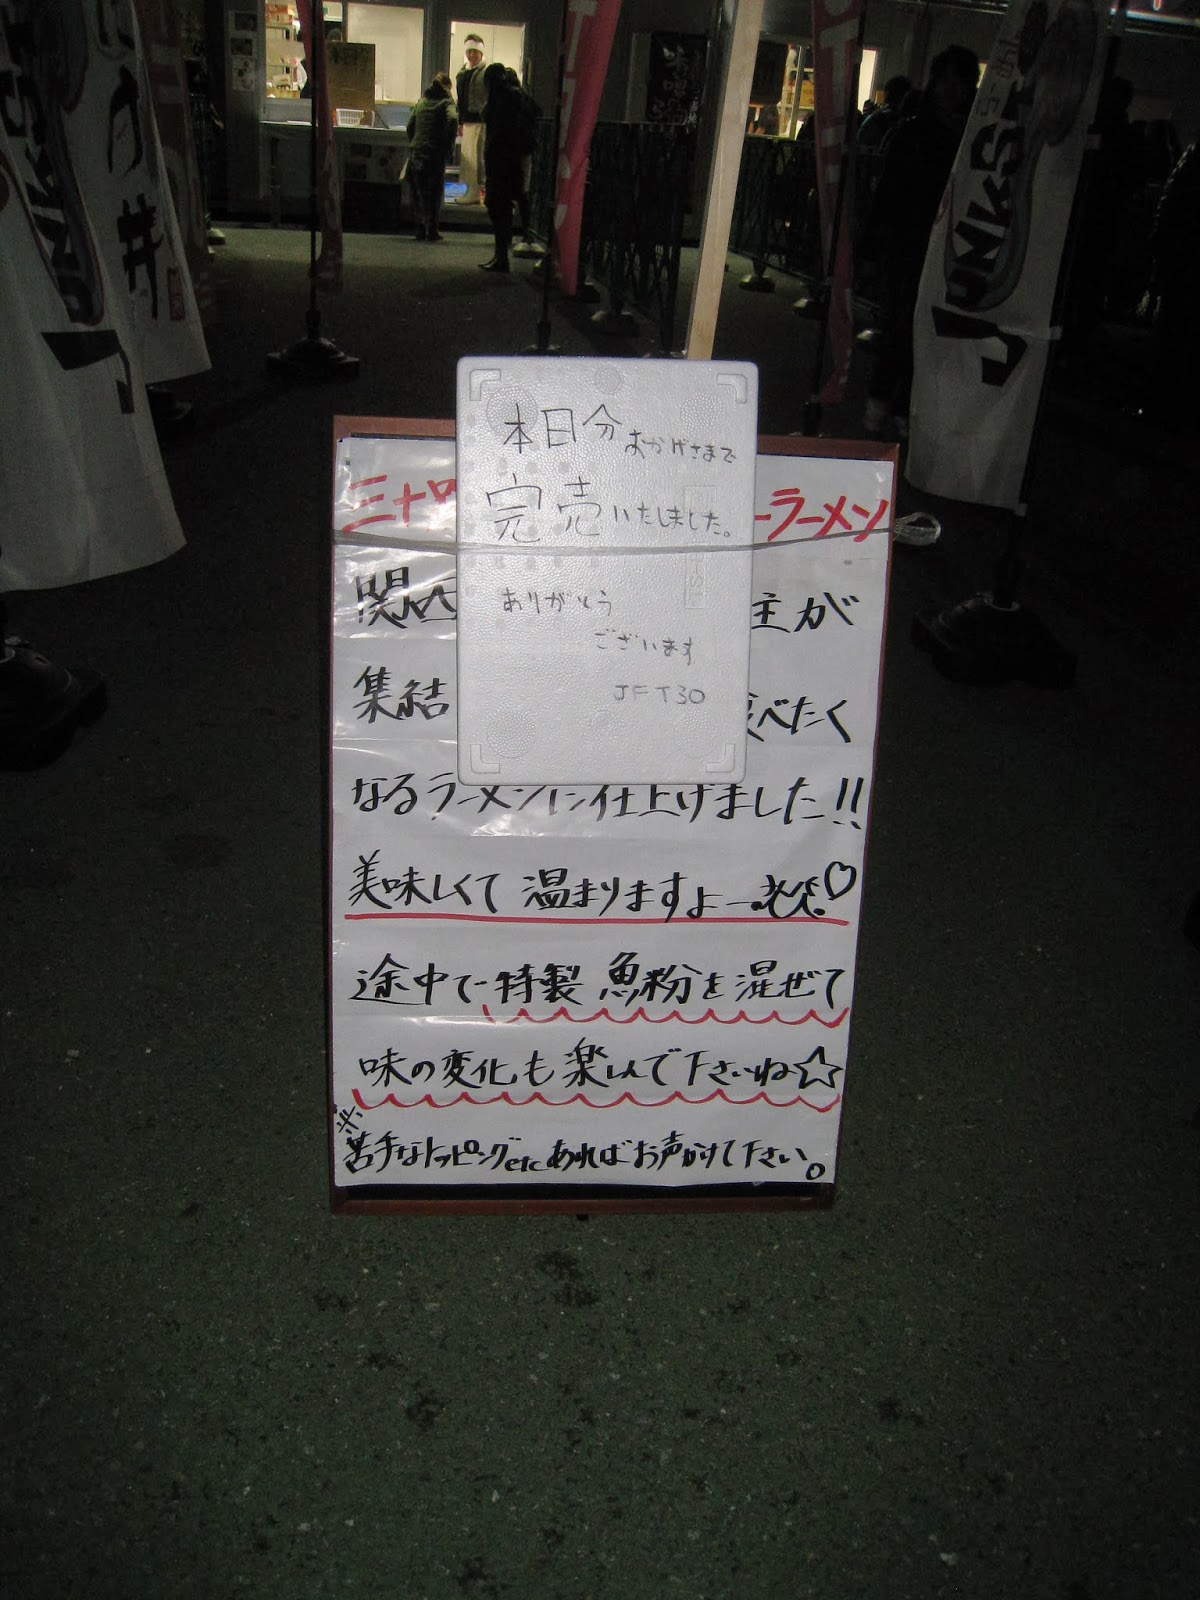 本日分おかげさまで
完売いたしました。
ありがとう
ございます
JFT30
三十
ーラーメン
関西
主が
集結
べたく
なるラーメンに仕上げました!!
美味しくて温まりますよー♡
途中で特製魚粉を混ぜて
味の変化も楽しんで下さいね☆
※
苦手なトッピングetcあればお声かけて下さい。
JUNKST
J
丼